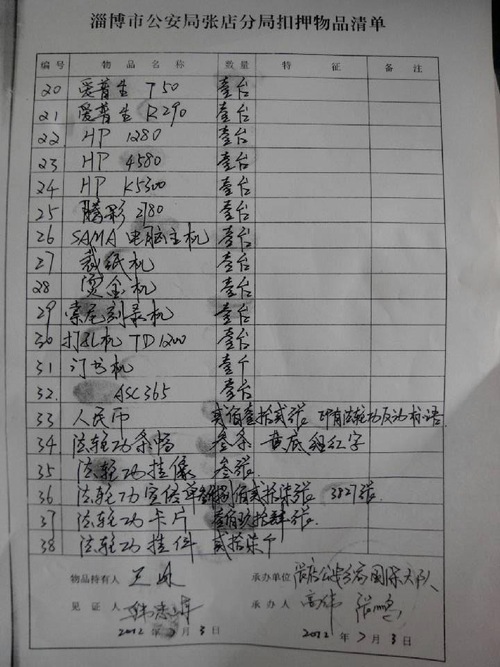 淄博市公安局张店分局扣押物品清单
编号 物品名称 数量 特征 备注
20 爱普生 T50 壹台
21 爱普生 R290 壹台
22 HP 1280 壹台
23 HP 4580 壹台
24 HP K5300 壹台
25 腾彩 2780 壹台
26 SAMA 电脑主机 壹台
27 裁纸机 壹台
28 烫金机 壹台
29 索尼刻录机 壹台
30 打孔机 TD1200 壹台
31 订书机 壹个
32. ASC365 壹台
33 人民币 贰佰叁拾贰张 印有法轮功反动标语
34 法轮功条幅 叁条 黄底红字
35 法轮功挂像 叁张
36 法轮功宣传单 佰贰拾柒张 3827张
37 法轮功卡片 壹佰玖拾肆张
38 法轮功挂件 贰拾柒个
物品持有人 承办单位 张店公安分局国保大队
见证人 承办人 高伟
2012年7月3日 2012年7月3日